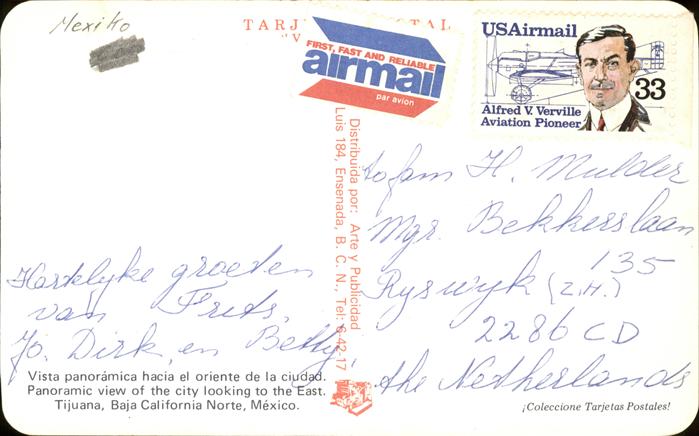 Mexiko
TARJ
TAL
"V
FIRST, FAST AND RELIABLE
airmail
par avion
USAirmail
33
Alfred V. Verville
Aviation Pioneer
Hartelyke groeten
van Frits,
Jo, Dirk, en Betty,
Vista panorámica hacia el oriente de la ciudad.
Panoramic view of the city looking to the East.
Tijuana, Baja California Norte, México.
Distribuida por: Arte y Publicidad
Luis 184, Ensenada, B. C. N., Tel: 6-42-17
to fam H. Mulder
Mgr. Bekkerslaan
135
Ryswyk (Z.H.)
2286 CD
the Netherlands
¡Coleccione Tarjetas Postales!